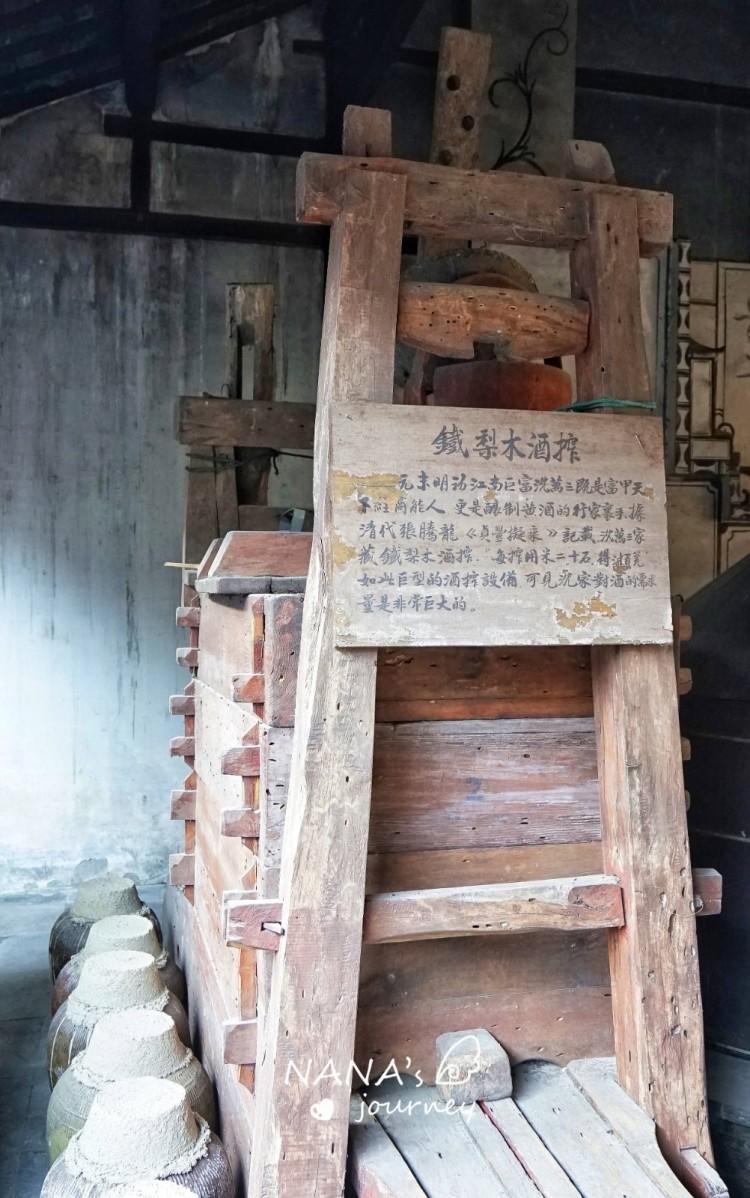 鐵梨木酒搾
——元末明初江南巨富沈萬三既是富甲天
下的商能人 更是釀制黄酒的行家裏手.據
清代張騰龍《貞豐擬乘》記載.沈萬三家
藏鐵梨木酒搾.每搾用米二十石.得油百瓮
如此巨型的酒搾設備.可見沈家對酒的需求
量是非常巨大的。
2
NANA's
journey